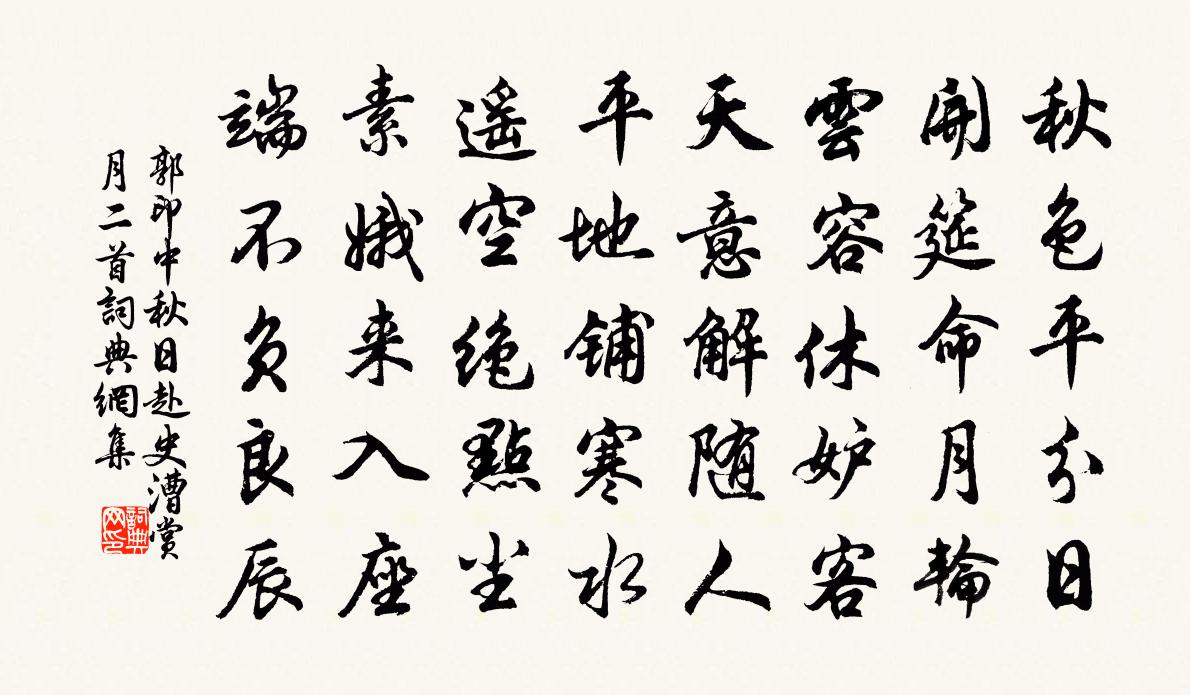 秋色平分日
開筵命月輪
雲容休妒客
天意解随人
平地铺寒水
遥空绝點尘
素娥来入座
端不负良辰
郭印中秋日赴史漕赏
月二首詞典網集
詞典
网印